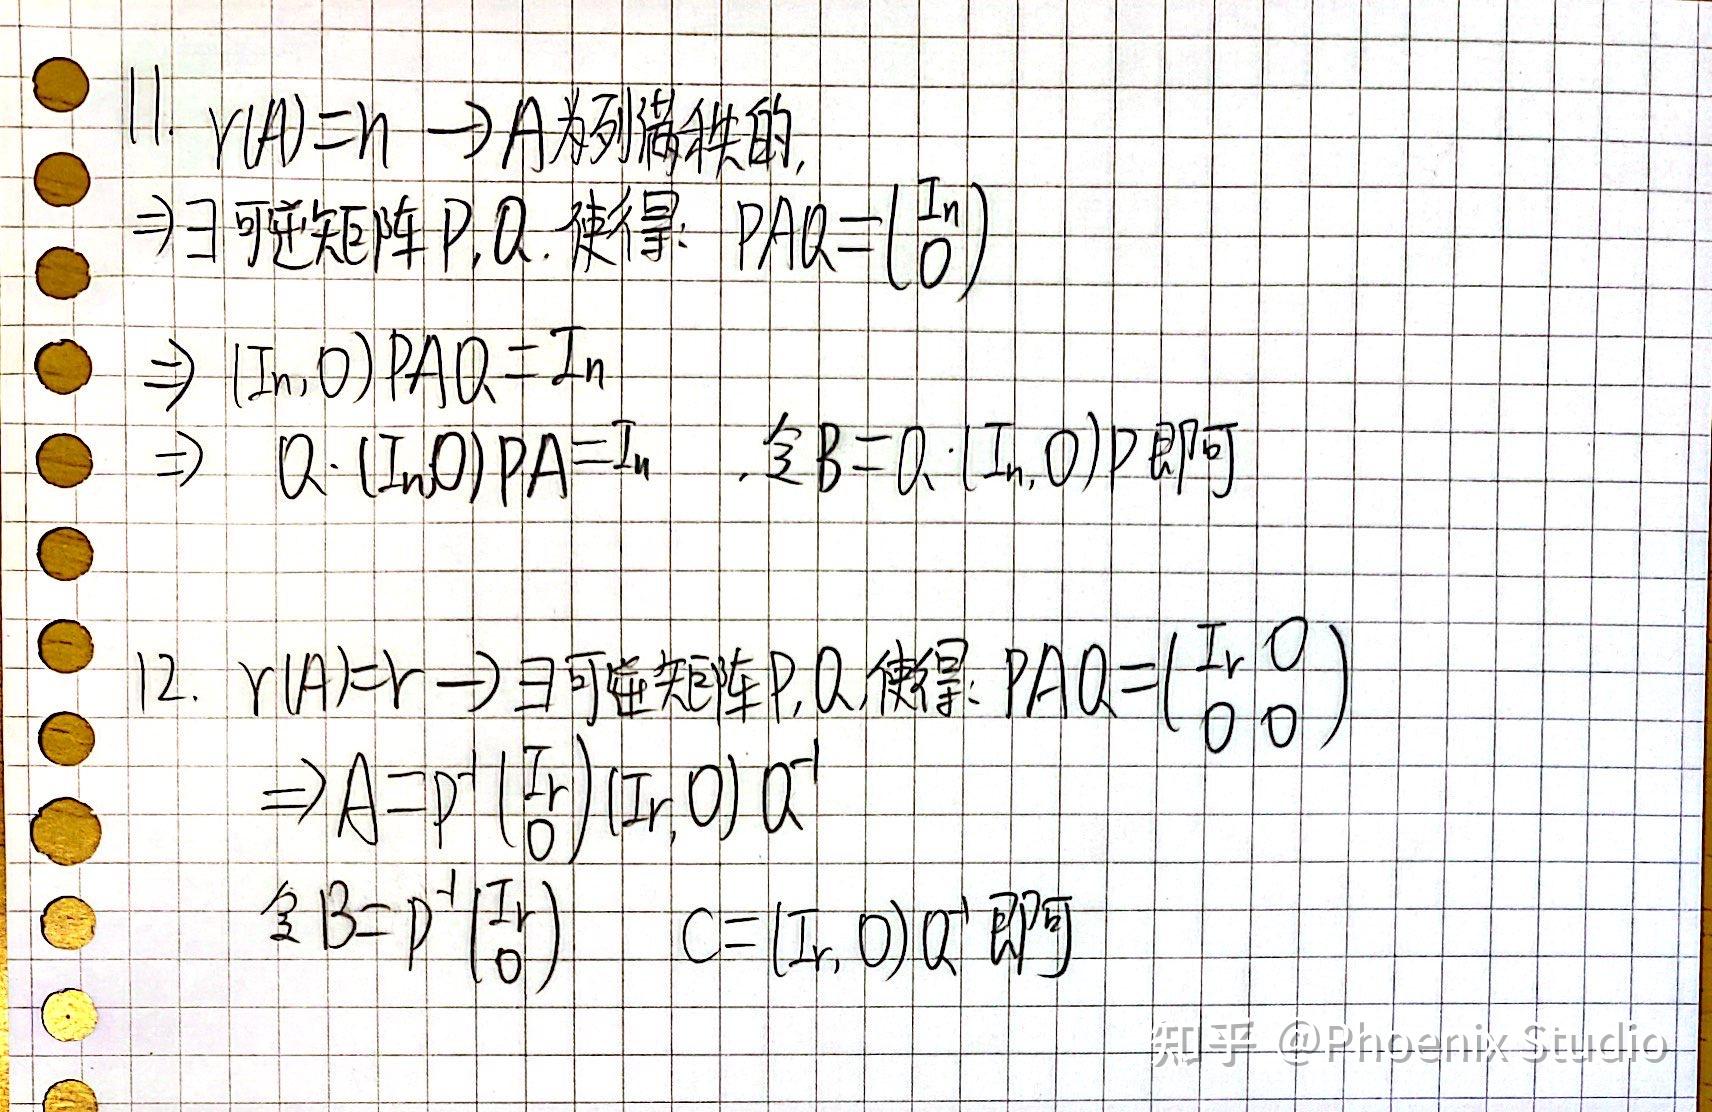 11. r(A)=n → A为列满秩的,
⇒∃可逆矩阵P,Q.使得: PAQ=(Iₙ
O)
⇒ (Iₙ,O)PAQ=Iₙ
⇒ Q·(Iₙ,O)PA=Iₙ ,令B=Q·(Iₙ,O)P即可
12. r(A)=r → ∃可逆矩阵P,Q,使得: PAQ=(Iᵣ O
O O)
⇒A=P⁻¹(Iᵣ
O)(Iᵣ,O)Q⁻¹
令B=P⁻¹(Iᵣ
O) C=(Iᵣ,O)Q⁻¹即可
知乎 @Phoenix Studio